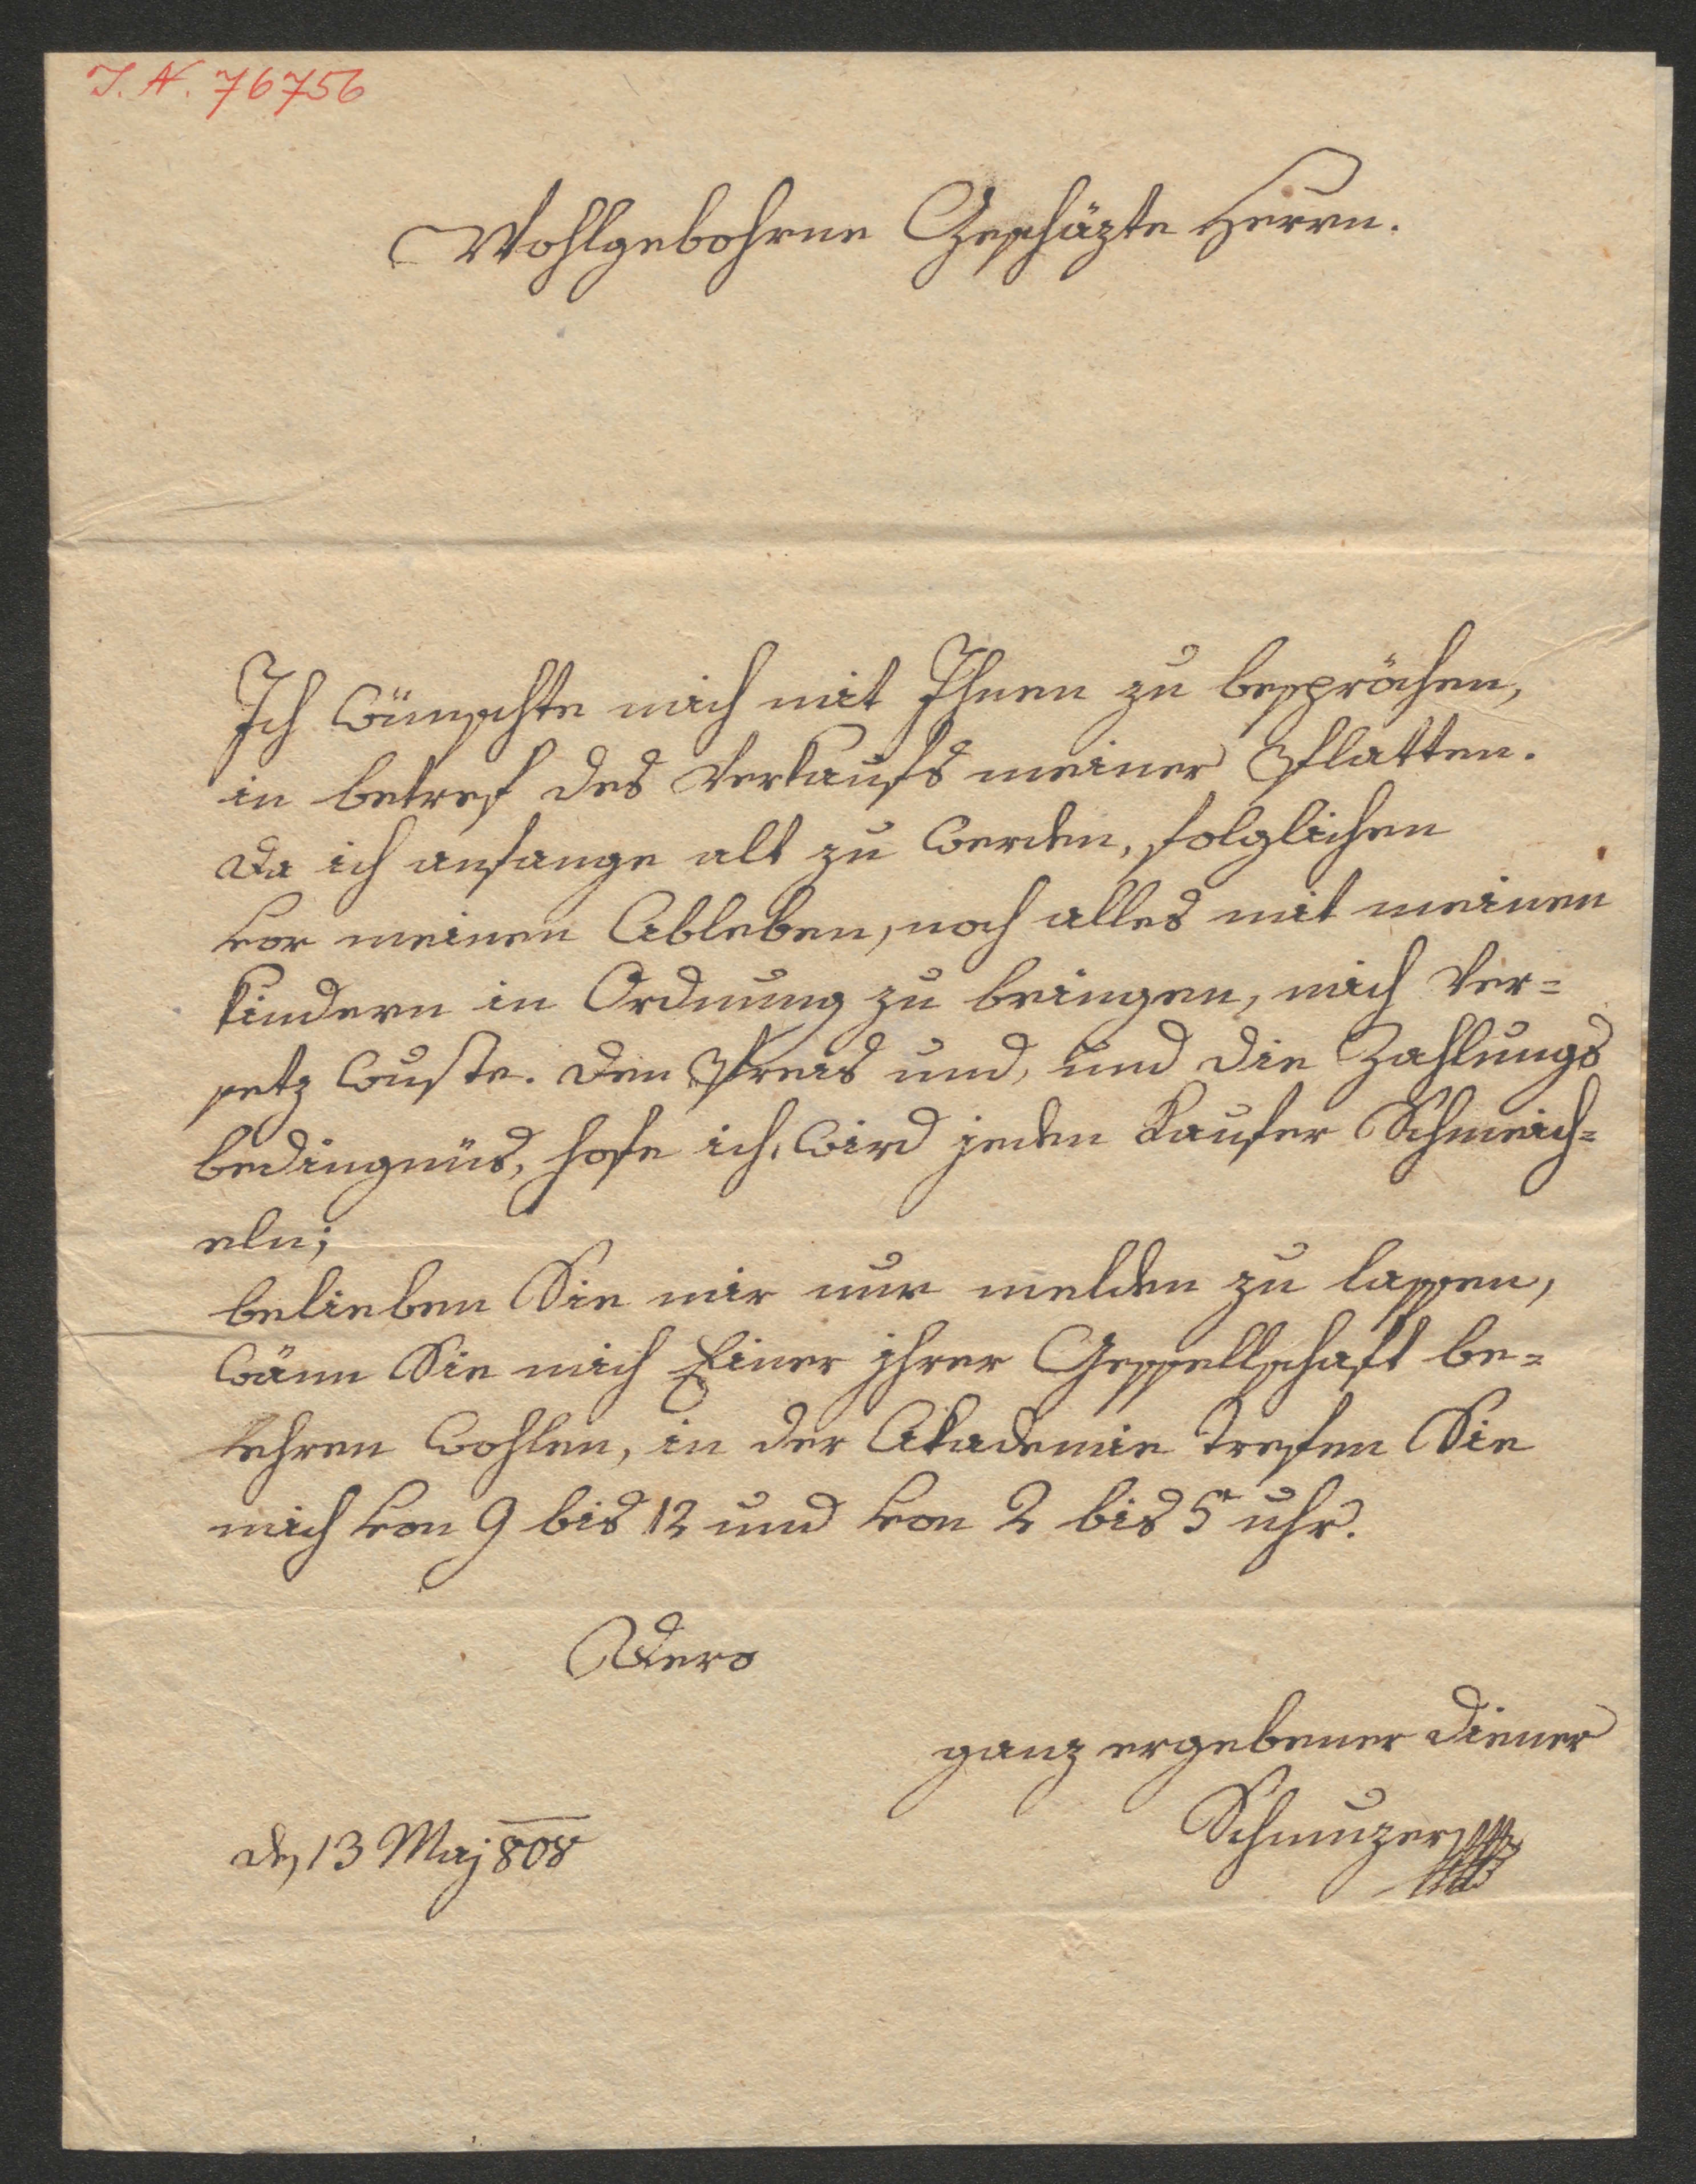 I. N. 76756
Wohlgebohrne Geschäzte Herrn.
Ich wünschte mich mit Ihnen zu bespröchen,
in betref des Verkaufs meiner Platten.
Da ich anfange alt zu werden, folglichen
vor meinen Ableben, noch alles mit meinen
Kindern in Ordnung zu bringen, mich Ver=
setz wuste. Den Preis und, und die Zahlungs
bedingnüs, hofe ich, wird jeden Kaufer Schmeich=
eln;
belieben Sie mir nur melden zu lassen,
wänn Sie mich Einer ihrer Gesellschaft be=
ehren wohlen, in der Akademie trefen Sie
mich von 9 bis 12 und von 2 bis 5 uhr.
Dero
ganz ergebener Diener
Schmuzer
den 13 Maj 808